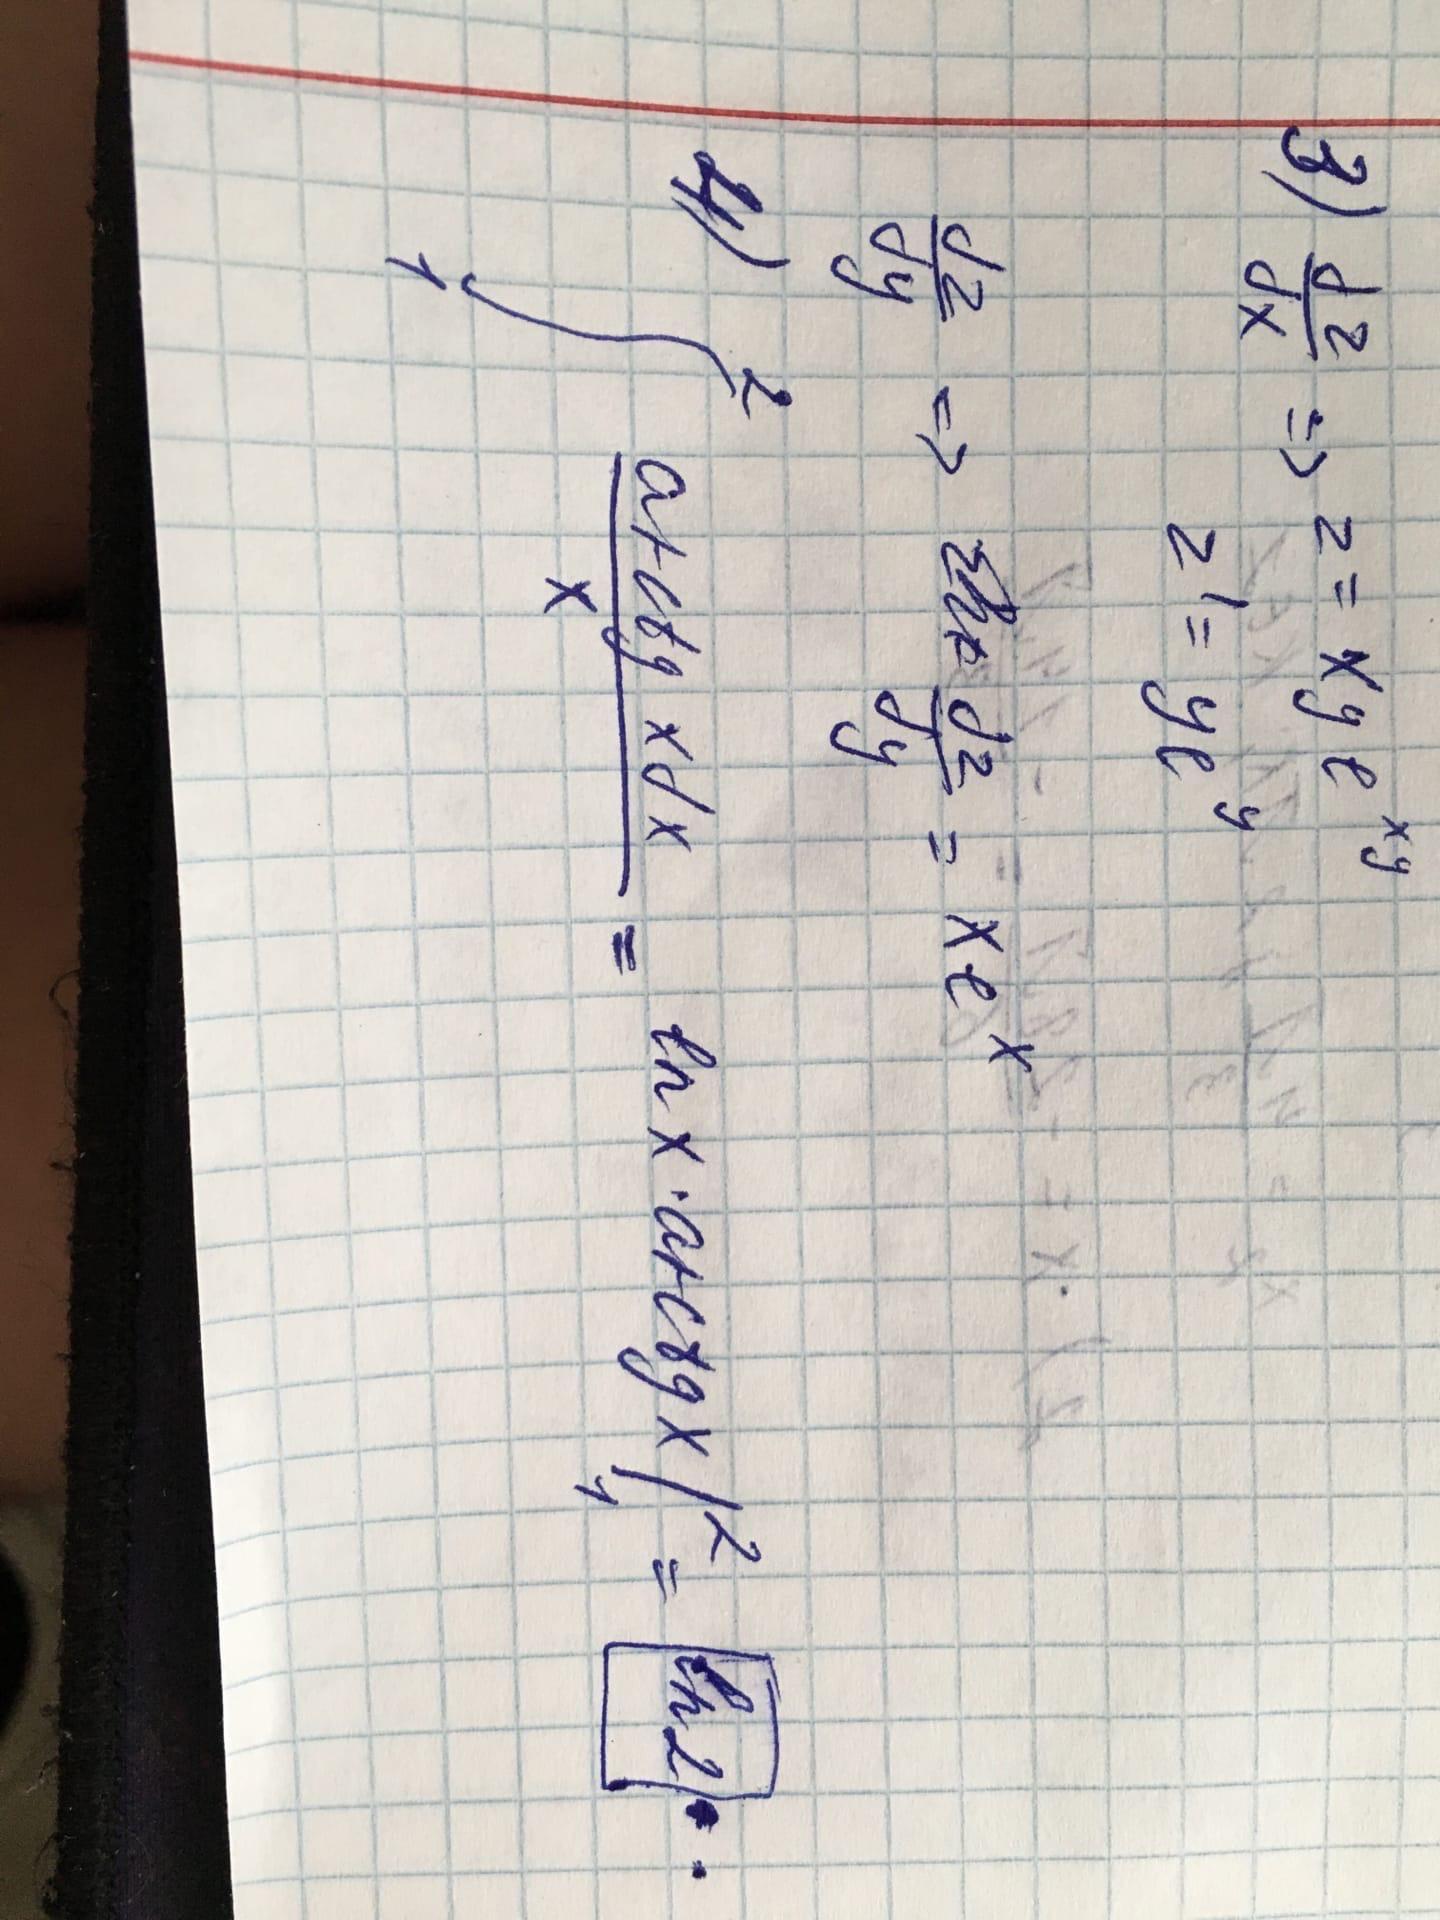 3) dz/dx => z = xye^xy
z' = ye^y
dz/dy => dz/dy = x·e^x
4) ∫₁² arctg xdx / x = ln x · arctg x |₁² = ln 2